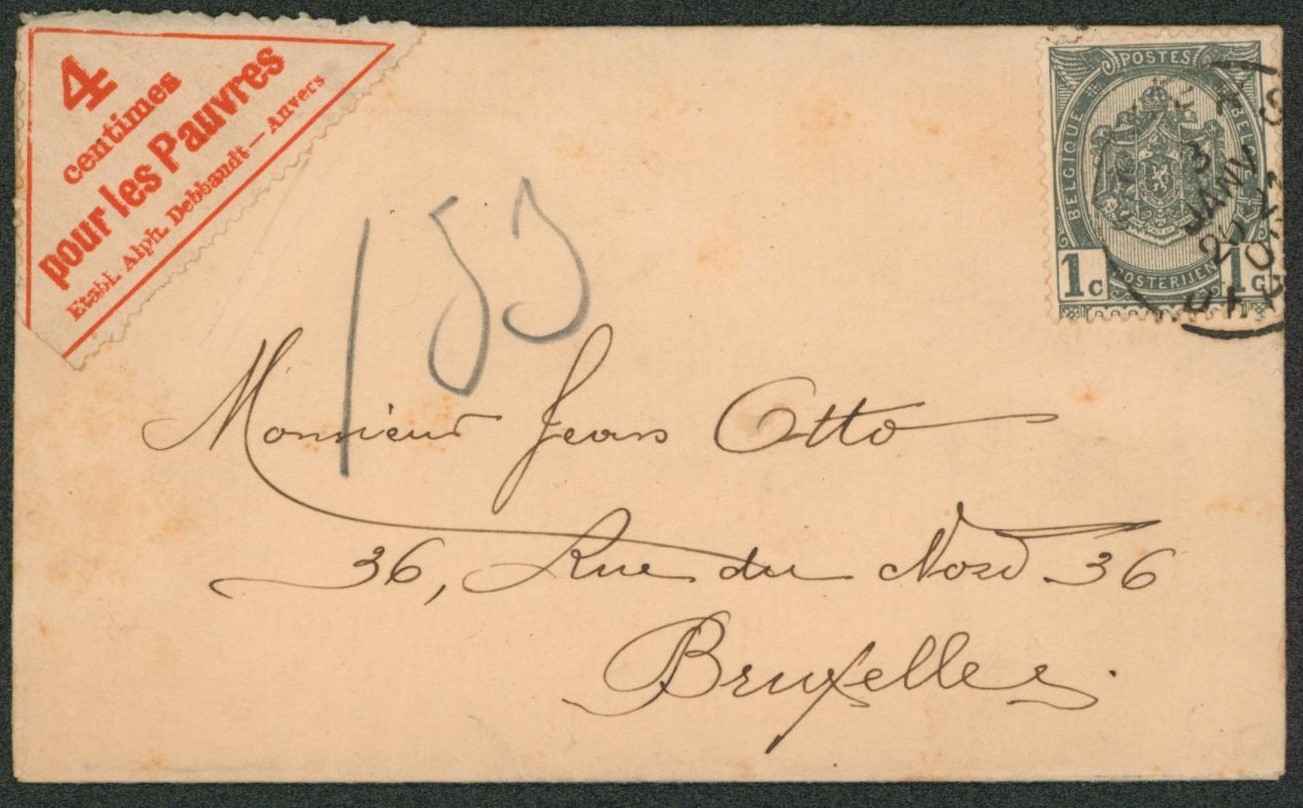 4
centimes
pour les Pauvres
Etabl. Alph. Debbaudt — Anvers
POSTES
BELGIQUE
BELGIE
POSTERIJEN
1c 1c
3
JANV
153
Monsieur Jean Otto
36, Rue du Nord 36
Bruxelles.